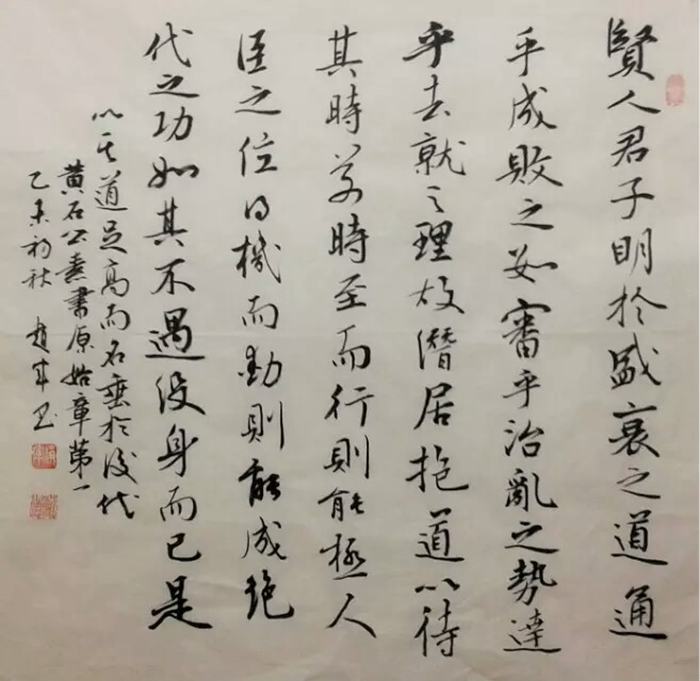 賢人君子明於盛衰之道通
乎成敗之數審乎治亂之勢達
乎去就之理故潛居抱道以待
其時若時至而行則能極人
臣之位得機而動則能成絕
代之功如其不遇沒身而已是
以其道足高而名垂於後代
黃石公素書原始章第一
乙未初秋 趙